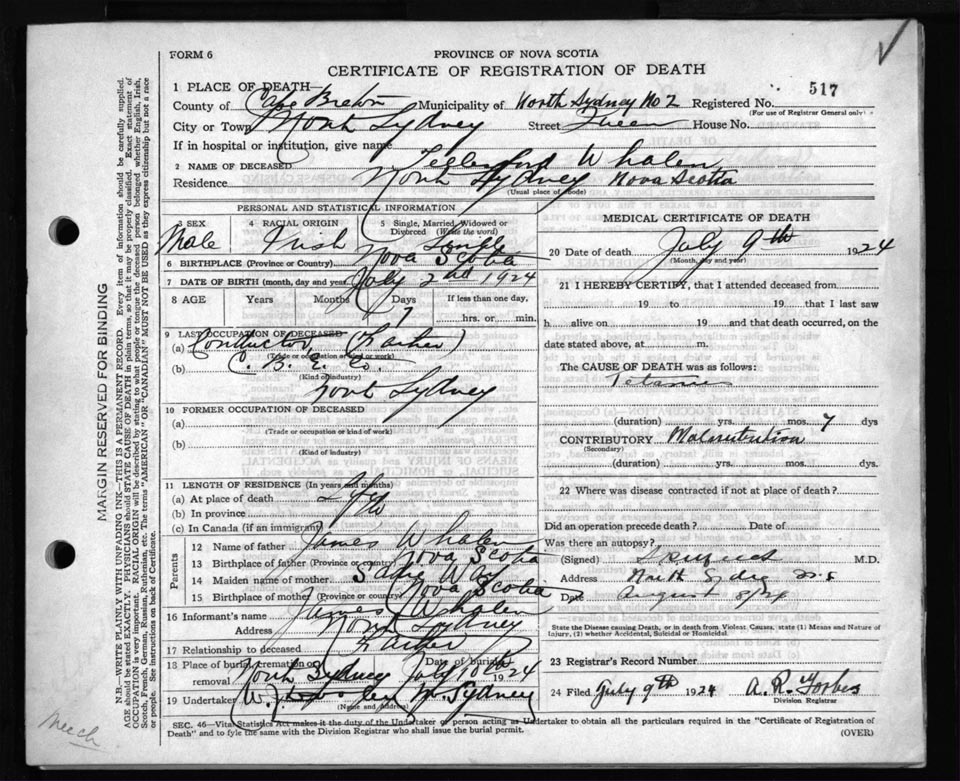 FORM 6
PROVINCE OF NOVA SCOTIA
CERTIFICATE OF REGISTRATION OF DEATH
517
1 PLACE OF DEATH
County of Cape Breton Municipality of North Sydney No 2 Registered No.
(For use of Registrar General only)
City or Town North Sydney Street Queen House No.
If in hospital or institution, give name
2 NAME OF DECEASED Whalen
Residence North Sydney Nova Scotia
(Usual place of abode)
PERSONAL AND STATISTICAL INFORMATION
3 SEX Male
4 RACIAL ORIGIN Irish
5 Single, Married, Widowed or Divorced (Write the word) Single
6 BIRTHPLACE (Province or Country) Nova Scotia
7 DATE OF BIRTH (month, day and year) July 2nd 1924
8 AGE Years Months Days 7 If less than one day, hrs. or min.
9 LAST OCCUPATION OF DECEASED
(a) Conductor, (Father)
(Trade or occupation or kind of work)
(b) C. B. E. Co.
(Kind of industry)
North Sydney
10 FORMER OCCUPATION OF DECEASED
(a)
(Trade or occupation or kind of work)
(b)
(Kind of industry)
11 LENGTH OF RESIDENCE (In years and months)
(a) At place of death Life
(b) In province
(c) In Canada (if an immigrant)
Parents
12 Name of father James Whalen
13 Birthplace of father (Province or country) Nova Scotia
14 Maiden name of mother Sadie
15 Birthplace of mother (Province or country) Nova Scotia
16 Informant's name James Whalen
Address North Sydney
17 Relationship to deceased Father
18 Place of burial, cremation or removal North Sydney Date of burial July 10th 1924
19 Undertaker W. N. Sydney
(Name and Address)
MEDICAL CERTIFICATE OF DEATH
20 Date of death July 9th 1924
(Month, day and year)
21 I HEREBY CERTIFY, that I attended deceased from
19 to 19 that I last saw
h alive on 19 and that death occurred, on the
date stated above, at m.
The CAUSE OF DEATH was as follows:
Tetanus
(duration) yrs. mos. 7 dys
CONTRIBUTORY Malnutrition
(Secondary)
(duration) yrs. mos. dys.
22 Where was disease contracted if not at place of death?
Did an operation precede death? Date of
Was there an autopsy?
(Signed) M.D.
Address North Sydney N.S
Date August 8/24
State the Disease causing Death, or in death from Violent Causes, state (1) Means and Nature of Injury, (2) whether Accidental, Suicidal or Homicidal.
23 Registrar's Record Number
24 Filed July 9th 1924 A. R. Forbes
Division Registrar
SEC. 46—Vital Statistics Act makes it the duty of the Undertaker or person acting as Undertaker to obtain all the particulars required in the "Certificate of Registration of
Death" and to fyle the same with the Division Registrar who shall issue the burial permit. (OVER)
MARGIN RESERVED FOR BINDING
N.B.—WRITE PLAINLY WITH UNFADING INK—THIS IS A PERMANENT RECORD. Every item of information should be carefully supplied.
AGE should be stated EXACTLY. PHYSICIANS should STATE CAUSE OF DEATH in plain terms, so that it may be properly classified. Exact statement of
OCCUPATION is very important. RACIAL ORIGIN will be described by stating to what people or tongue the deceased person belonged whether English, Irish,
Scotch, French, German, Russian, Ruthenian, etc. The terms "AMERICAN" OR "CANADIAN" MUST NOT BE USED as they express citizenship but not a race
of people. See instructions on back of Certificate.
Meech